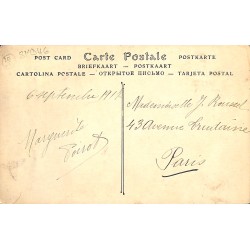 POST CARD Carte Postale POSTKARTE
BRIEFKAART — POSTKAART
CARTOLINA POSTALE — ОТКРЫТОЕ ПИСЬМО — TARJETA POSTAL
6 Septembre
Mademoiselle J. Roussel
43 Avenue Trudaine
Paris
Marguerite